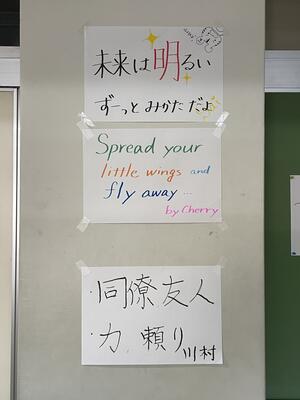 未来は明るい
ずーっとみかただよ
Spread your
little wings and
fly away...
by Cherry
・同僚友人
・力、頼り
川村